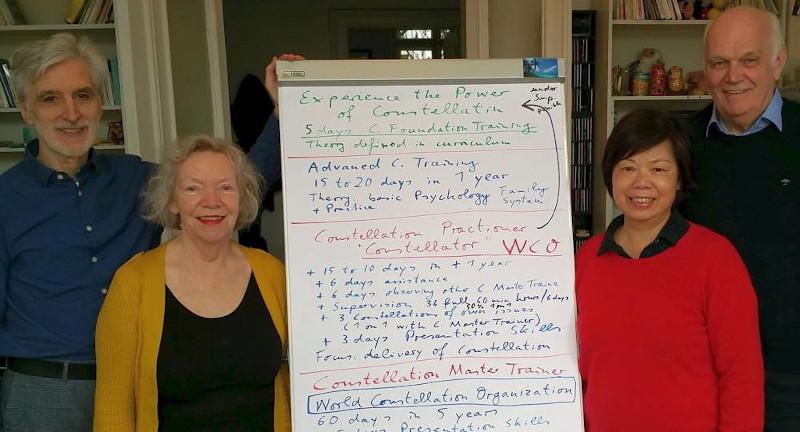 Experience the Power
of Constellatin
5 days C. Foundation Training
Theory defined in curriculum
under
Sup.
Advanced C. Training
15 to 20 days in 1 year
Theory: basic Psychology Family
+ Practice System
Constellation Practioner
"Constellator" WCO
+ 15 to 10 days in + 1 year
+ 6 days assistance
+ 6 days observing other C. Master Traine
+ Supervision 36 full 60 min hours/6 days
50% 1on1
+ 3 Constellations of own issues
(1 on 1 with C. Master Trainer)
+ 3 days Presentation Skills
Focus: delivery of Constellation
Constellation Master Trainer
World Constellation Organization
60 days in 5 years
days Presentation skills